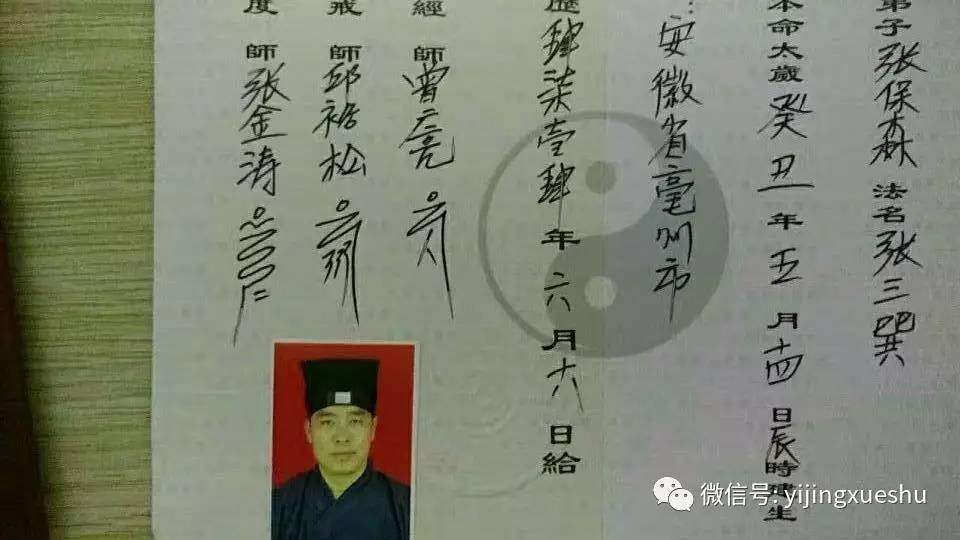 弟子张保森法名张三巽
本命太歲癸丑年五月十四日辰時建生
安徽省亳州市
歷肆柒壹肆年六月十六日給
經師曾亮
戒師邱裕松
度師张金涛
微信号: yijingxueshu